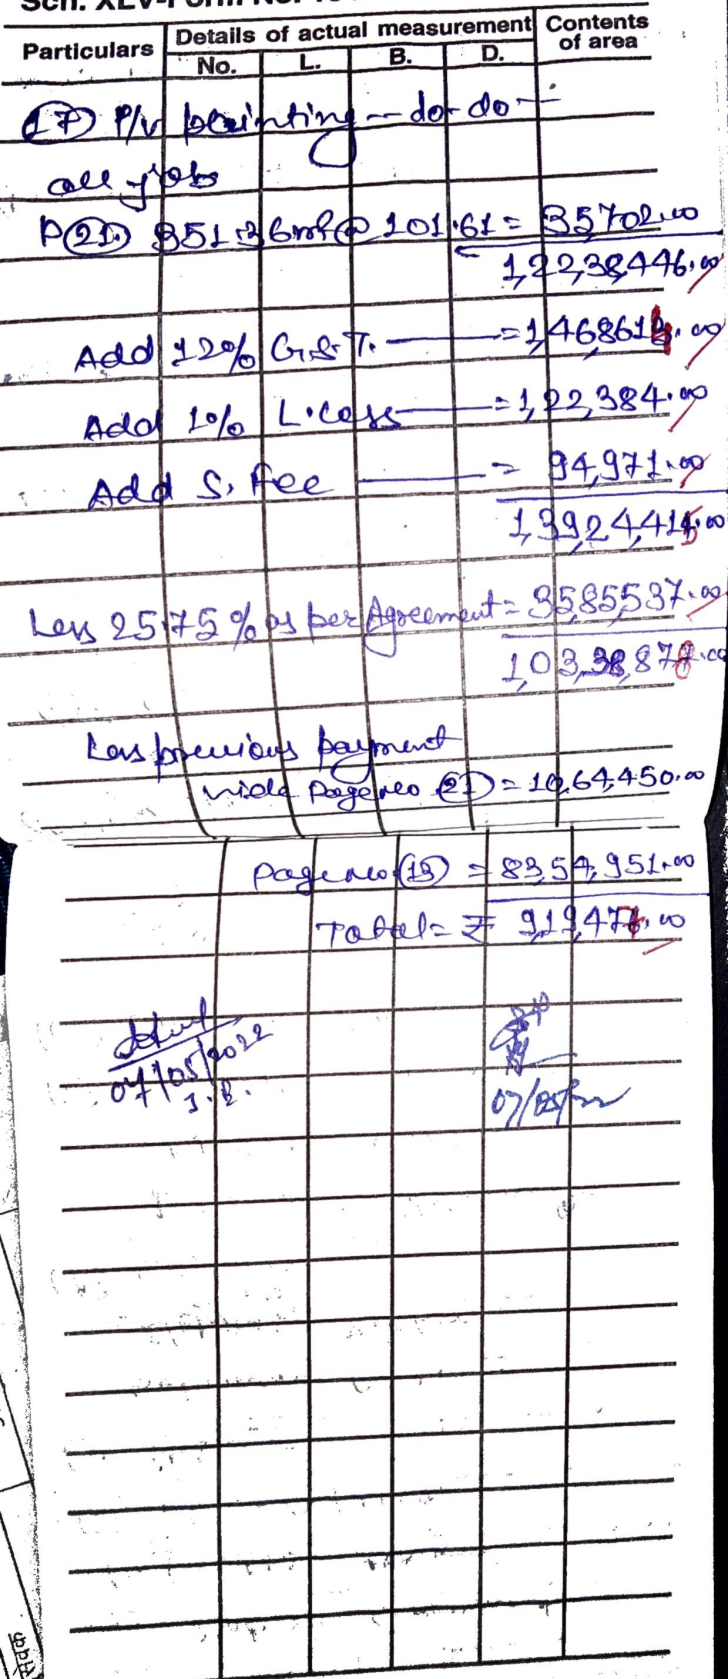 Particulars Details of actual measurement Contents of area
No. L. B. D.
(17) P/v painting -- do - do --
all jobs
P(21) 351.36m²@ 101.61 = 35702.00
1,22,38,446.00
Add 12% G.S.T. = 1,468614.00
Add 1% L.cess = 1,22,384.00
Add S. Fee = 94,971.00
1,39,24,415.00
Less 25.75% as per Agreement = 35,85,537.00
1,03,38,878.00
Less previous payment
vide Page no (21) = 10,64,450.00
Page no (19) = 83,54,951.00
Total = ₹ 9,19,477.00
07/05/2022
J.E.
07/05/22